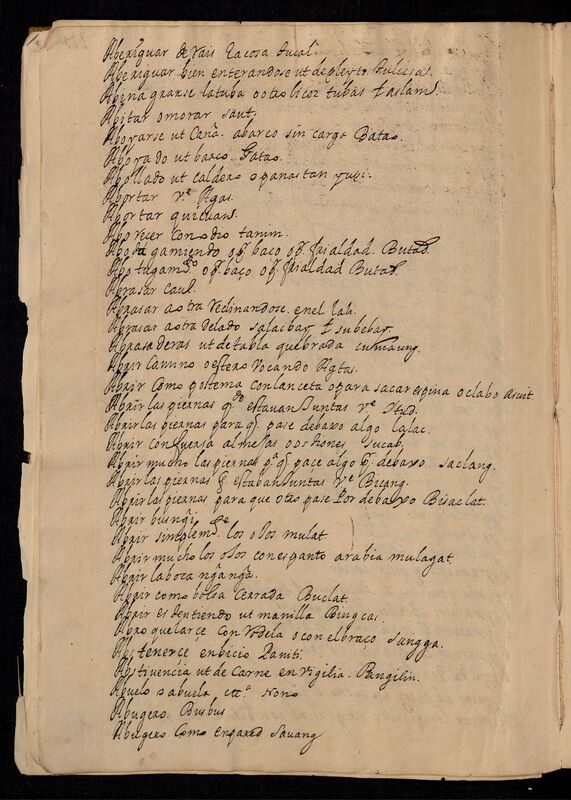 Aberiguar de rais la cosa sucal.
Aberiguar bien enterandose ut de pleyto sulcesa.
Abinagrarse la tuba o otro licor tubas
Abitar o morar saut.
Aboyarse ut Cano. abarco sin carga Batao.
Aboyado ut barco. Gatao.
Abollado ut caldero o ganastan yupi.
Abortar v.e Agas.
Abortar quiuans.
Aborecer con odio tanim.
gamiendo o q. baço o q. frialdad. Butad.
o q. baço o q. frialdad Butad.
Abrasar caul.
Abrasar a otra reclinandose en el lali.
Abrasar a otra de lado salacbay t subebay.
Abrasaderas ut de tabla quebrada cumaung.
Abrir camino o estero rocando Agtas.
Abrir como postema con lanceta o para sacar espina o clabo asuit
Abrir las piernas q.do estavan juntas v.e
Abrir las piernas para q. pase debaxo algo lalac.
Abrir con fuersa almejas o ostiones sucab.
Abrir mucho las piernas p.a q. pace algo p. debaxo. saclang.
Abrir las piernas q. estaban juntas v.e Bicang.
Abrir las piernas para que otro pase por debaxo Bisaclat.
Abrir busngi.
Abrir simplem.te los ojos mulat.
Abrir mucho los ojos con espanto o rabia mulagat.
Abrir la boca nganga.
Abrir como bolsa cerrada Buclat.
Abrir esdentiendo ut manilla Bingcas.
Abroquelarce con rodela o con el braço sangga.
Abstenerce en bicio
Abstinencia ut de carne en vigilia. Pangilin.
Abuelo s abuela Nono
Abugero. Busbus
Abugero como en pared Sauang